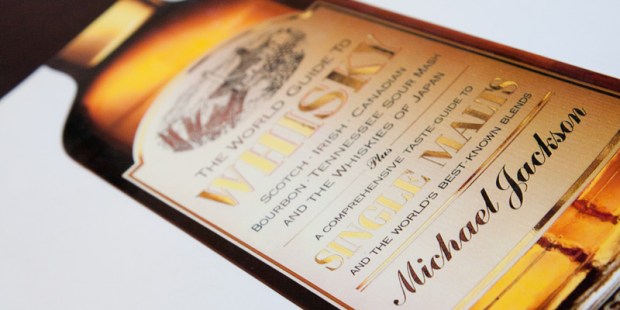 THE WORLD GUIDE TO
WHISKY
SCOTCH · IRISH · CANADIAN
BOURBON · TENNESSEE SOUR MASH
AND THE WHISKIES OF JAPAN
Plus
A COMPREHENSIVE TASTE-GUIDE TO
SINGLE MALTS
AND THE WORLD'S BEST-KNOWN BLENDS
Michael Jackson